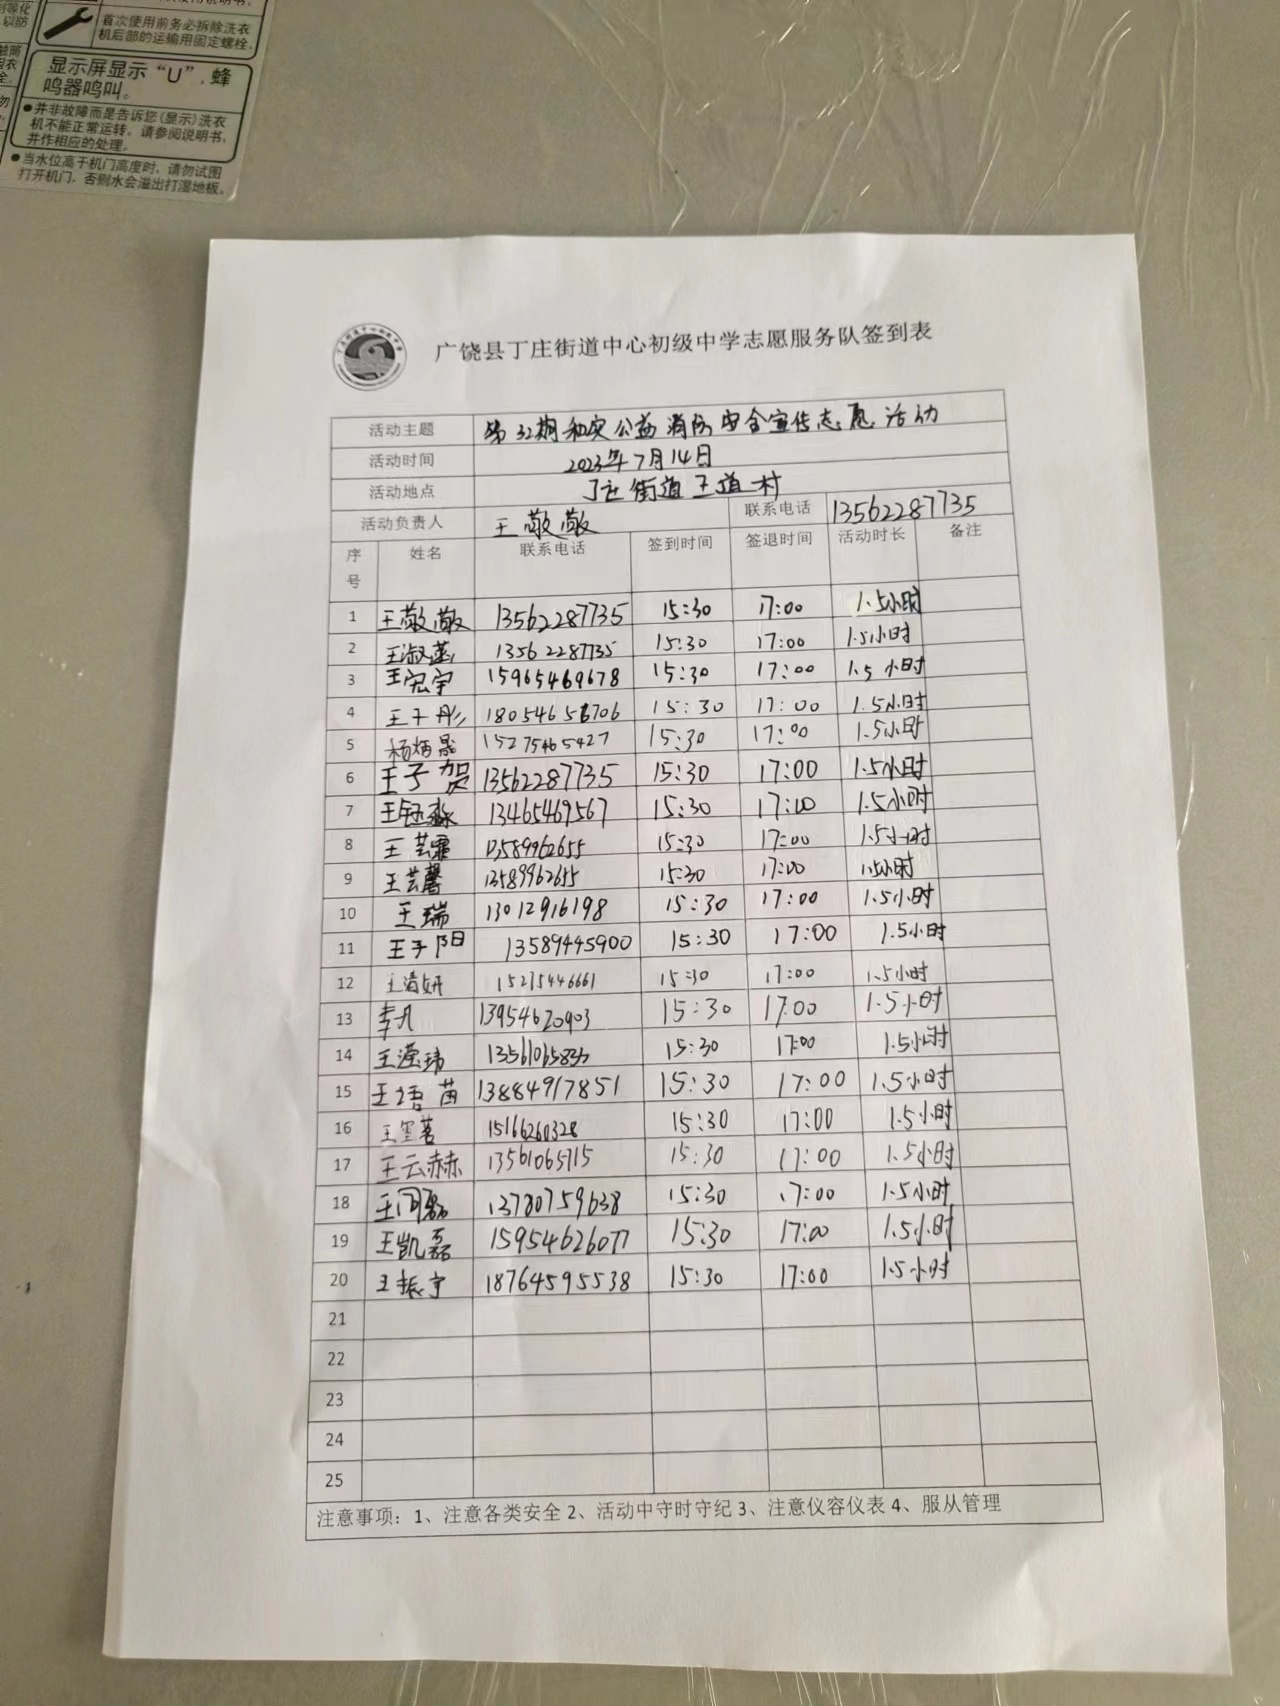 首次使用前务必拆除洗衣
机后部的运输用固定螺栓。
显示屏显示“U”,蜂
鸣器鸣叫。
●并非故障而是告诉您(显示)洗衣
机不能正常运转。请参阅说明书,
并作相应的处理。
●当水位高于机门高度时,请勿试图
打开机门,否则水会溢出打湿地板。
广饶县丁庄街道中心初级中学志愿服务队签到表
活动主题 第32期和安公益消防安全宣传志愿活动
活动时间 2023年7月14日
活动地点 丁庄街道王道村
活动负责人 王敬敬 联系电话 13562287735
序号 姓名 联系电话 签到时间 签退时间 活动时长 备注
1 王敬敬 13562287735 15:30 17:00 1.5小时
2 王淑菡 13562287735 15:30 17:00 1.5小时
3 王宏宇 15965469678 15:30 17:00 1.5小时
4 王子彤 15:30 17:00 1.5小时
5 杨炳晟 15275465427 15:30 17:00 1.5小时
6 王子贺 13562287735 15:30 17:00 1.5小时
7 王钰淼 13465469567 15:30 17:00 1.5小时
8 王芸霏 13589962655 15:30 17:00 1.5小时
9 王芸馨 13589962655 15:30 17:00 1.5小时
10 王瑞 13012916198 15:30 17:00 1.5小时
11 王子阳 13589445900 15:30 17:00 1.5小时
12 王清妍 15275446661 15:30 17:00 1.5小时
13 李凡 13954620903 15:30 17:00 1.5小时
14 王滢玮 15:30 17:00 1.5小时
15 王梧茵 13884917851 15:30 17:00 1.5小时
16 15166260328 15:30 17:00 1.5小时
17 王云赫 13561065715 15:30 17:00 1.5小时
18 王同磊 13780759638 15:30 17:00 1.5小时
19 王凯磊 15954626077 15:30 17:00 1.5小时
20 王振宇 18764595538 15:30 17:00 1.5小时
21
22
23
24
25
注意事项:1、注意各类安全 2、活动中守时守纪 3、注意仪容仪表 4、服从管理